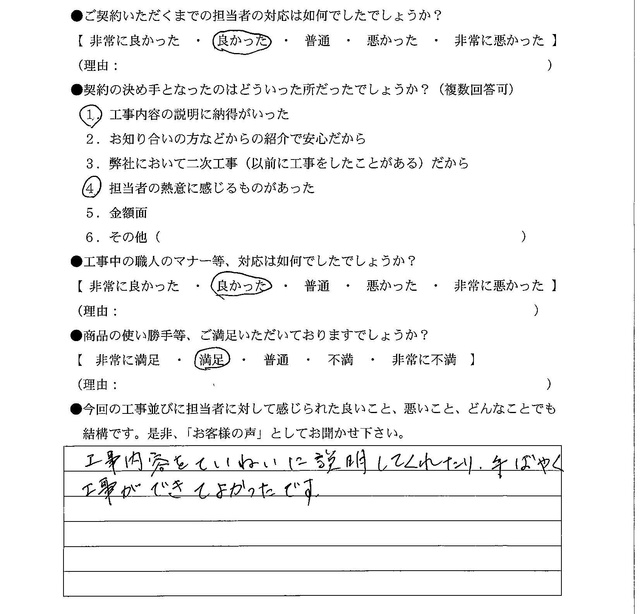 ●ご契約いただくまでの担当者の対応は如何でしたでしょうか？
【 非常に良かった ・ 良かった ・ 普通 ・ 悪かった ・ 非常に悪かった 】
（理由： ）
●契約の決め手となったのはどういった所だったでしょうか？（複数回答可）
1．工事内容の説明に納得がいった
2．お知り合いの方などからの紹介で安心だから
3．弊社において二次工事（以前に工事をしたことがある）だから
4．担当者の熱意に感じるものがあった
5．金額面
6．その他（ ）
●工事中の職人のマナー等、対応は如何でしたでしょうか？
【 非常に良かった ・ 良かった ・ 普通 ・ 悪かった ・ 非常に悪かった 】
（理由： ）
●商品の使い勝手等、ご満足いただいておりますでしょうか？
【 非常に満足 ・ 満足 ・ 普通 ・ 不満 ・ 非常に不満 】
（理由： ）
●今回の工事並びに担当者に対して感じられた良いこと、悪いこと、どんなことでも
結構です。是非、「お客様の声」としてお聞かせ下さい。
工事内容をていねいに説明してくれたり、手ばやく
工事ができてよかったです。